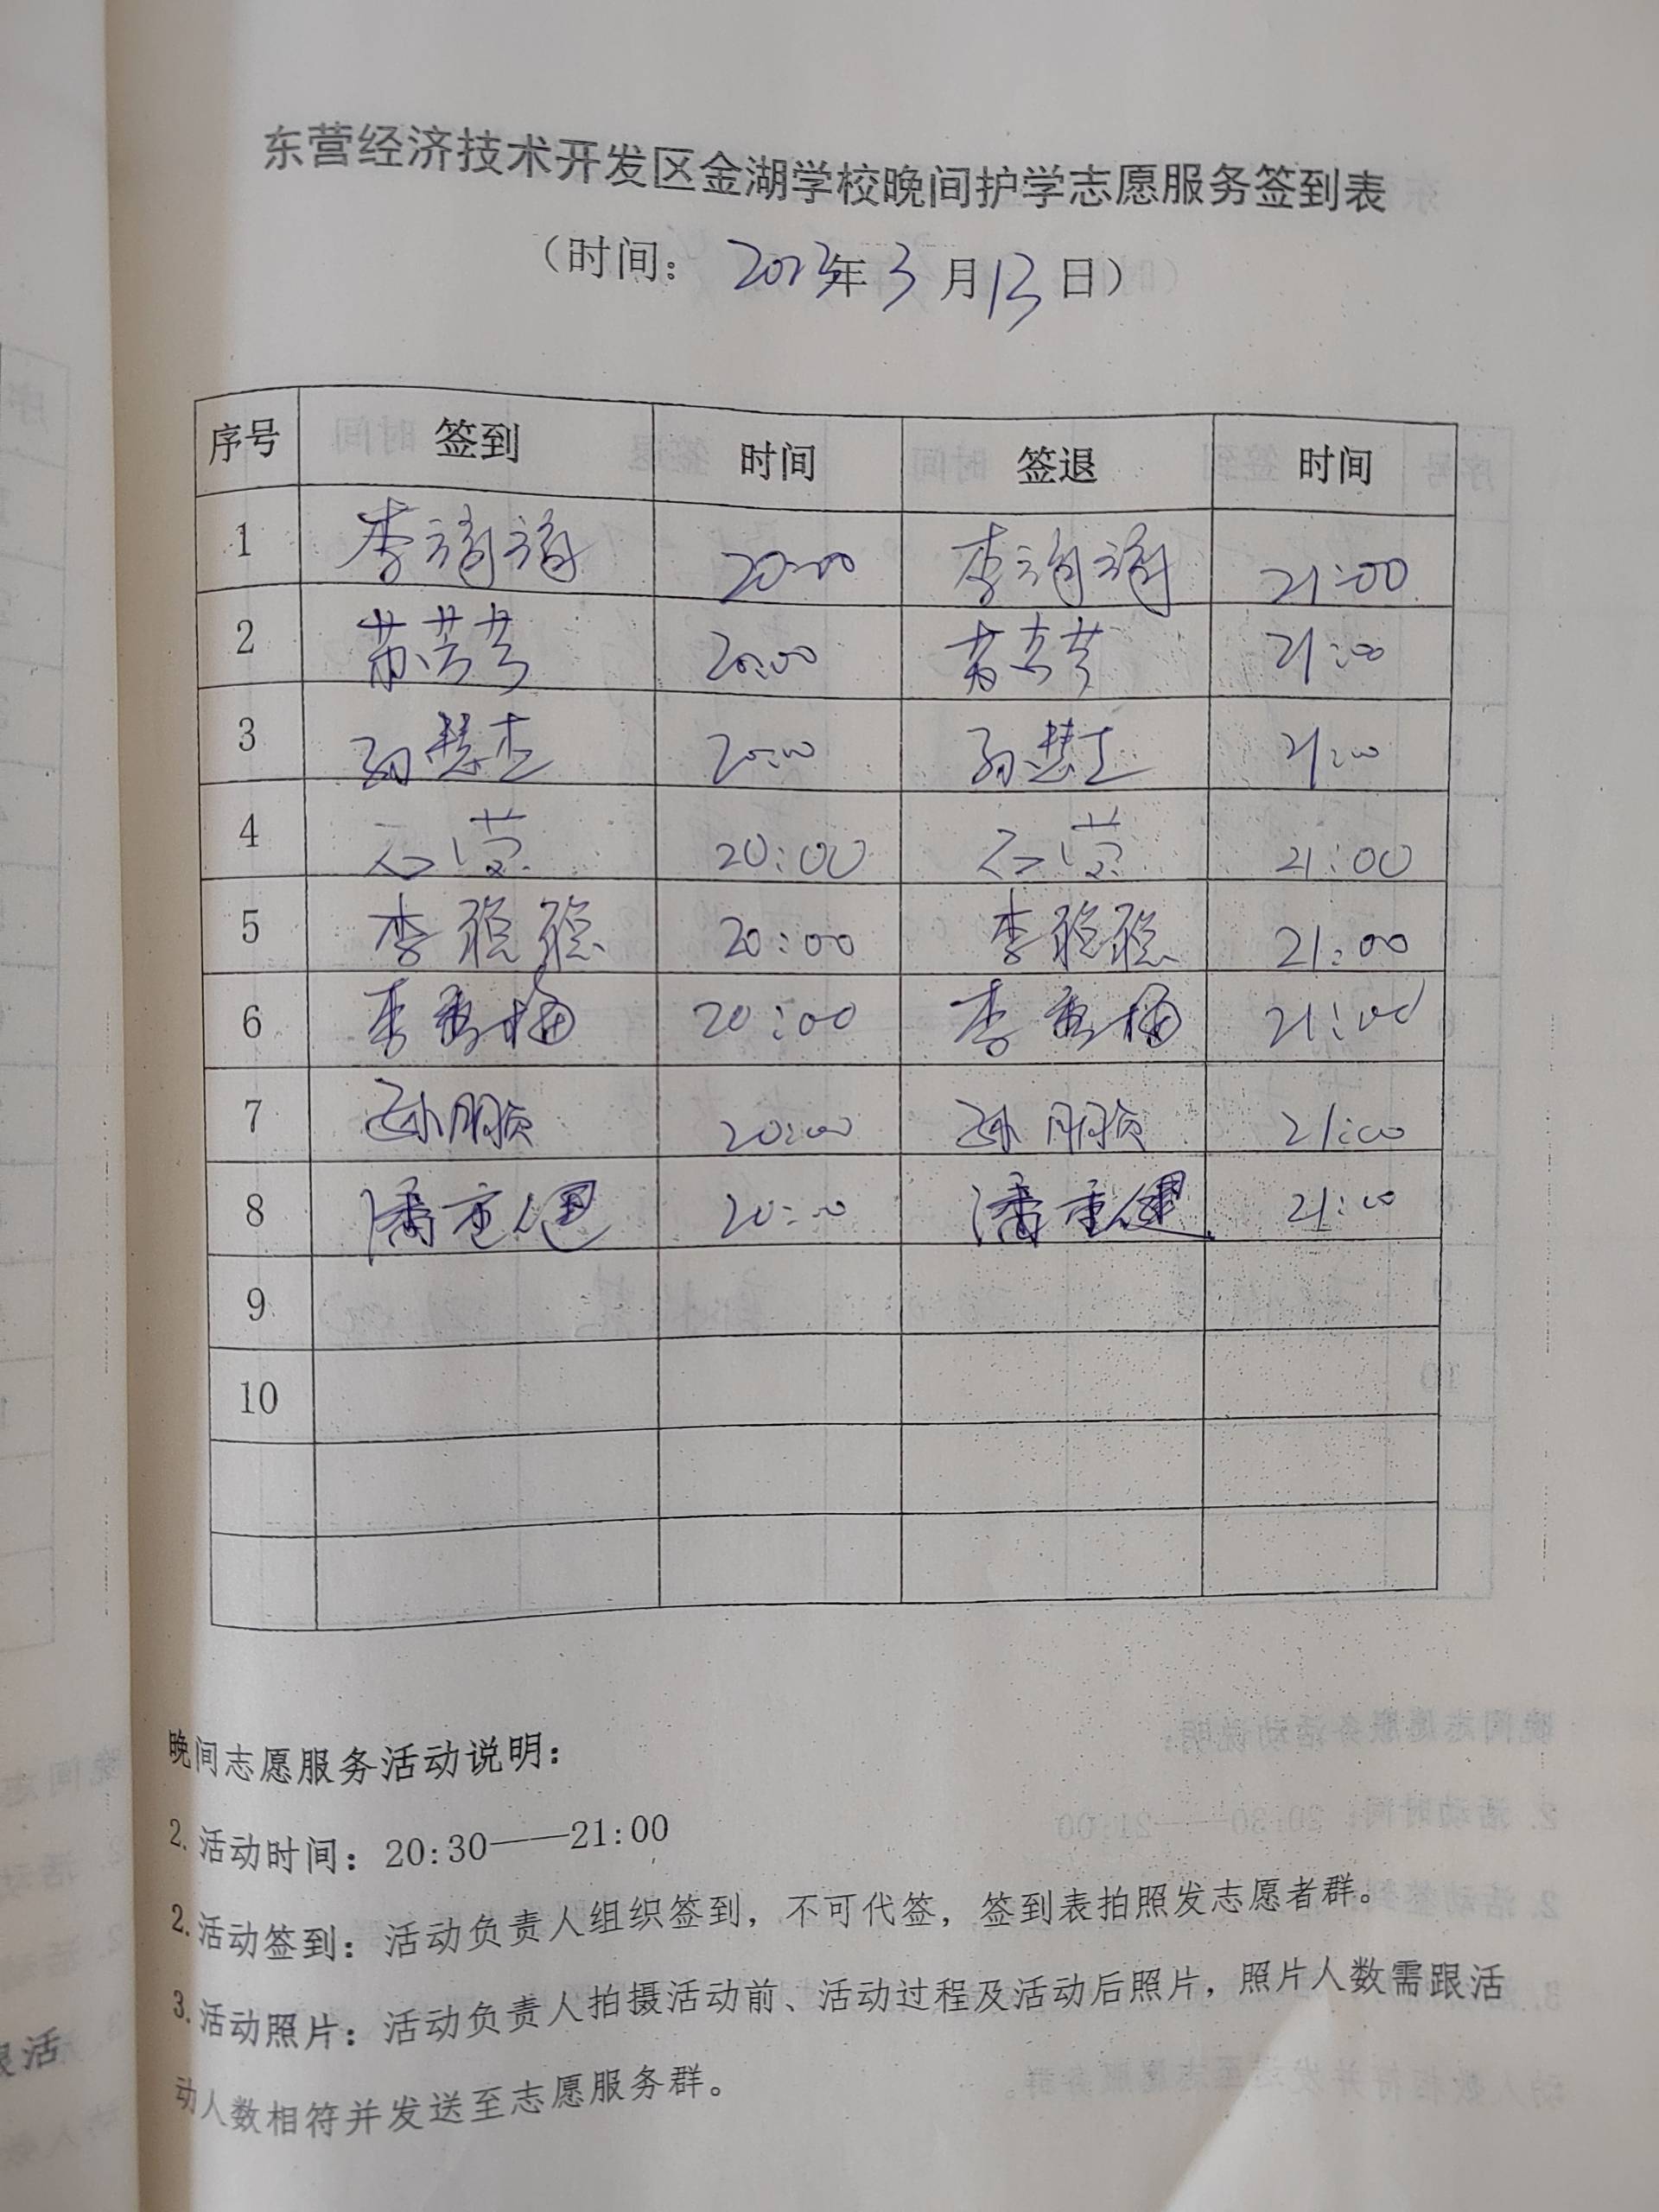 东营经济技术开发区金湖学校晚间护学志愿服务签到表
（时间： 2023年 3 月 13 日）
序号 签到 时间 签退 时间
1 李 20:00 李 21:00
2 苏芳芳 20:00 苏芳芳 21:00
3 孙慧 20:00 孙慧 21:00
4 石 20:00 石 21:00
5 李聪聪 20:00 李聪聪 21:00
6 李秀梅 20:00 李秀梅 21:00
7 孙朋 20:00 孙朋 21:00
8 潘重健 20:00 潘重健 21:00
9
10
晚间志愿服务活动说明：
2. 活动时间：20:30——21:00
2. 活动签到：活动负责人组织签到，不可代签，签到表拍照发志愿者群。
3. 活动照片：活动负责人拍摄活动前、活动过程及活动后照片，照片人数需跟活
动人数相符并发送至志愿服务群。